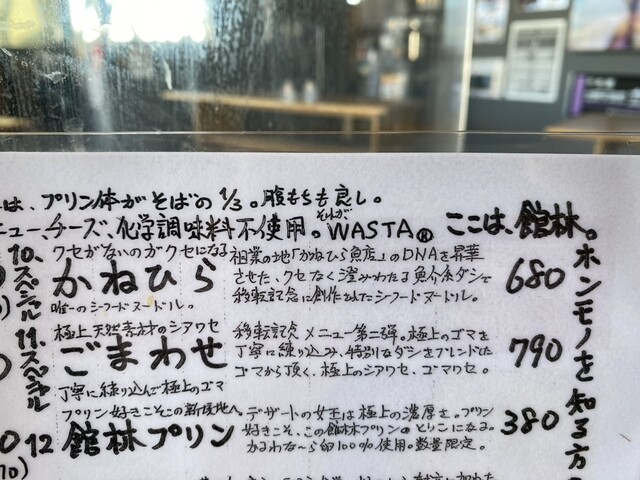 は、プリン体がそばの1/3。腹もちも良し。
ニュー、チーズ、化学調味料不使用。それがWASTA® ここは、館林。
10.スペシャル
クセがないのがクセになる
かねひら
唯一のシーフードヌードル。
祖業の地「かねひら魚店」のDNAを昇華
させた、クセなく澄みわたる魚介系ダシで
移転記念に創作されたシーフードヌードル。
680
11.スペシャル
極上天然素材のシアワセ
ごまわせ
丁寧に練り込んで極上のゴマ
移転記念メニュー第二弾。極上のゴマを
丁寧に練り込み、特別なダシをブレンドした
ゴマから頂く、極上のシアワセ、ゴマワセ。
790
12
プリン好きこそこの新境地へ。
館林プリン
デザートの女王は極上の濃厚を。プリン
好きこそ、この館林プリンのとりこになる。
数量限定。
380
ホンモノを知る方の